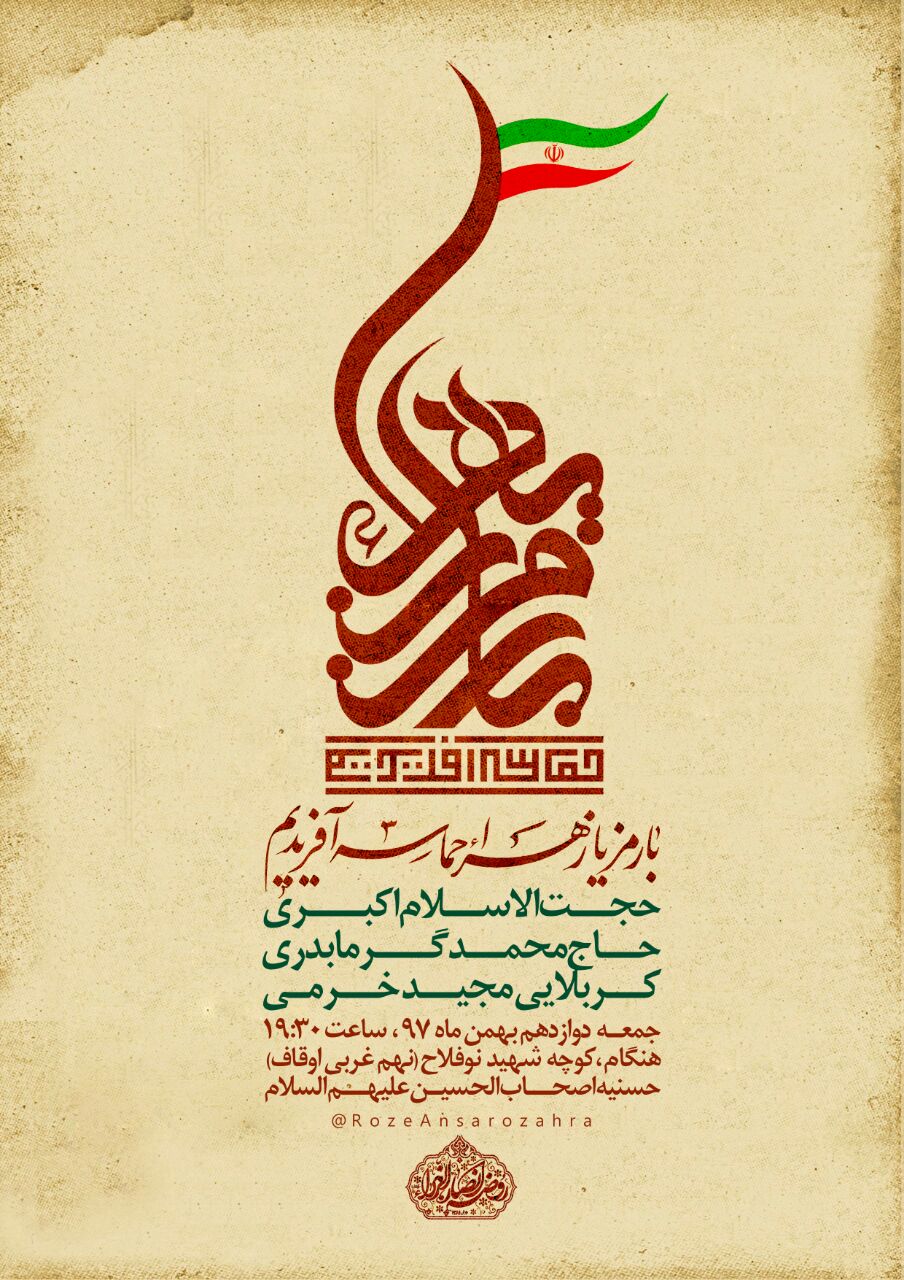 با رمز یا زهراء
حماسه آفریدیم
با رمز یا زهراء حماسه آفریدیم
حجت الاسلام اکبری
حاج محمد گرمابدری
کربلایی مجید خرمی
جمعه دوازدهم بهمن ماه ۹۷ ، ساعت ۱۹:۳۰
هنگام ، کوچه شهید نوفلاح (نهم غربی اوقاف)
حسنیه اصحاب الحسین علیهم السلام
@RozeAnsarozahra
روضه انصار الزهرا